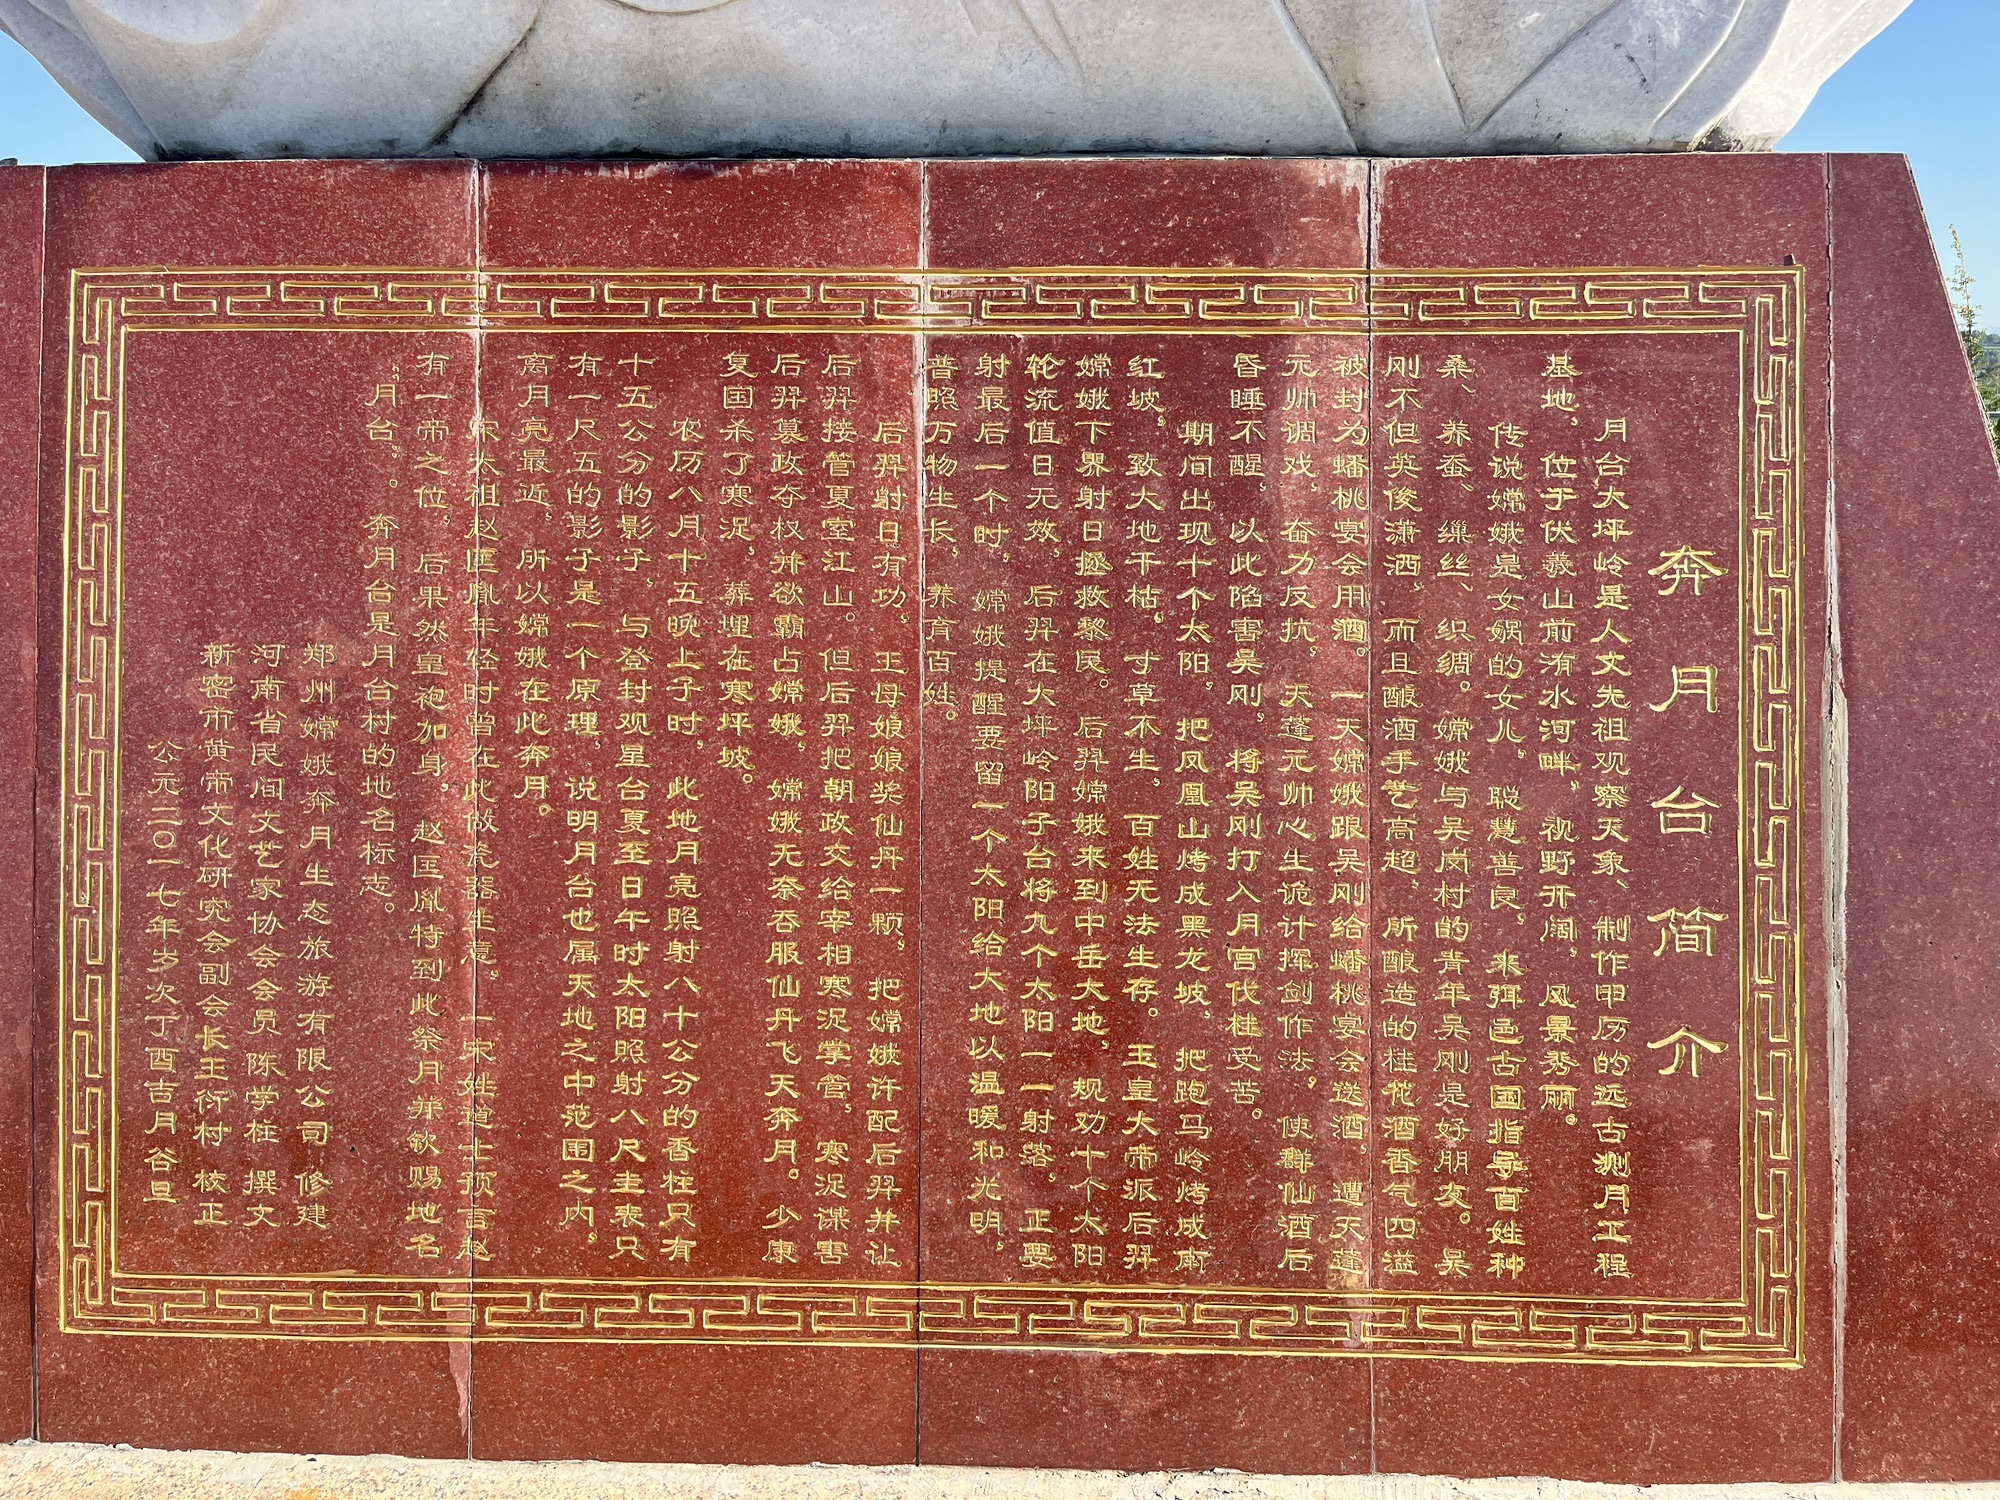 奔月台简介
月台大坪岭是人文先祖观察天象、制作甲历的远古测月工程
基地，位于伏羲山前洧水河畔，视野开阔，风景秀丽。
传说嫦娥是女娲的女儿，聪慧善良，来弭邑古国指导百姓种
桑、养蚕、缫丝、织绸。嫦娥与吴岗村的青年吴刚是好朋友。吴
刚不但英俊潇洒，而且酿酒手艺高超，所酿造的桂花酒香气四溢
被封为蟠桃宴会用酒。一天嫦娥跟吴刚给蟠桃宴会送酒，遭天蓬
元帅调戏，奋力反抗，天蓬元帅心生诡计挥剑作法，使群仙酒后
昏睡不醒，以此陷害吴刚，将吴刚打入月宫伐桂受苦。
期间出现十个太阳，把凤凰山烤成黑龙坡，把跑马岭烤成南
红坡。致大地干枯，寸草不生，百姓无法生存。玉皇大帝派后羿
嫦娥下界射日拯救黎民。后羿嫦娥来到中岳大地，规劝十个太阳
轮流值日无效，后羿在大坪岭阳子台将九个太阳一一射落，正要
射最后一个时，嫦娥提醒要留一个太阳给大地以温暖和光明，
普照万物生长，养育百姓。
后羿射日有功，王母娘娘奖仙丹一颗，把嫦娥许配后羿并让
后羿接管夏室江山。但后羿把朝政交给宰相寒浞掌管，寒浞谋害
后羿篡政夺权并欲霸占嫦娥，嫦娥无奈吞服仙丹飞天奔月。少康
复国杀了寒浞，葬埋在寒坪坡。
农历八月十五晚上子时，此地月亮照射八十公分的香柱只有
十五公分的影子，与登封观星台夏至日午时太阳照射八尺圭表只
有一尺五的影子是一个原理，说明月台也属天地之中范围之内，
离月亮最近，所以嫦娥在此奔月。
宋太祖赵匡胤年轻时曾在此做瓷器生意，一宋姓道士预言赵
有一帝之位，后果然皇袍加身，赵匡胤特到此祭月并钦赐地名
“月台”。奔月台是月台村的地名标志。
郑州嫦娥奔月生态旅游有限公司 修建
河南省民间文艺家协会会员陈学柱 撰文
新密市黄帝文化研究会副会长王衍村 核正
公元二〇一七年岁次丁酉吉月谷旦